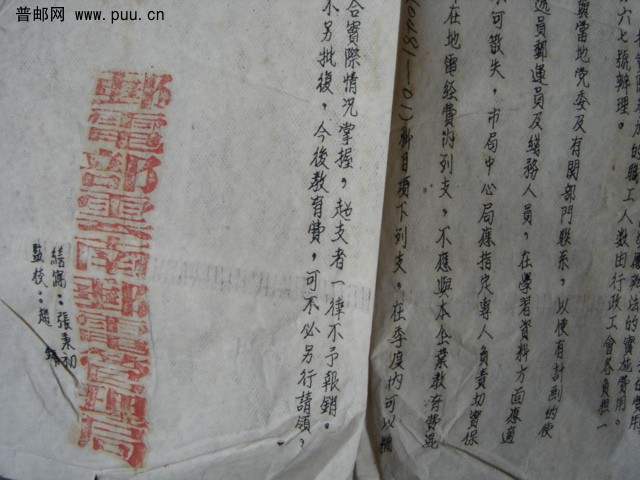 普邮网站
www.puu.cn
的職工人数由行政工会各負担一
六七號辦理。
與當地党委及有関部門联系，以便有計劃的使
遞員郵運員及綫務人員，在學習資料方面應適
可散失，市局中心局應指定專人負責切实保
在地電经費内列支，不應與本企業教育費混
(0481-0)科目項下列支。在季度内可以攤
合實際情况掌握，超支者一律不予報銷。
不另批復，今後教育費，可不必另行請領？
郵電部雲南郵電管理局
繕寫：張秉初
監校：趙